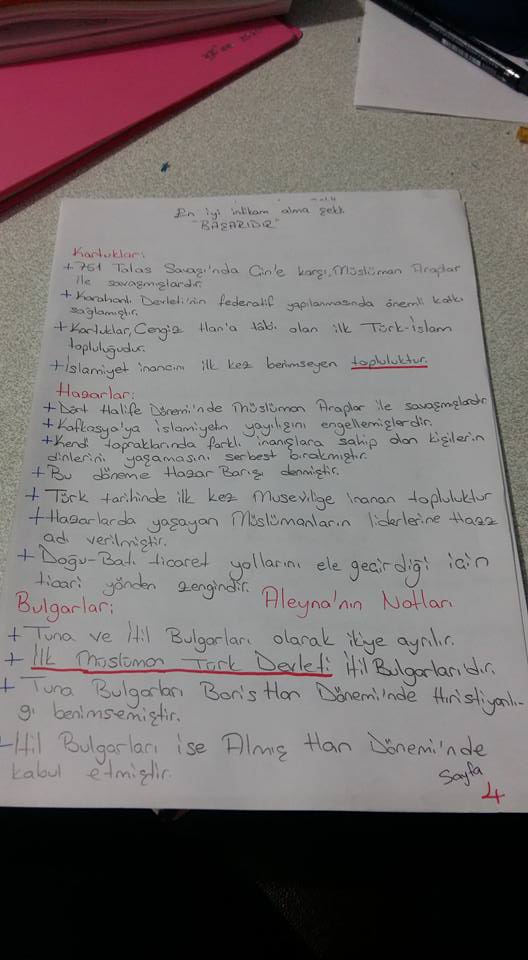 En iyi intikam alma şekli
"BAŞARIDIR"
Karluklar:
+751 Talas Savaşı'nda Çin'e karşı, Müslüman Araplar
ile savaşmışlardır.
+Karahanlı Devleti'nin federatif yapılanmasında önemli katkı
sağlamıştır.
+Karluklar, Cengiz Han'a tâbi olan ilk Türk-İslam
topluluğudur.
+İslamiyet inancını ilk kez benimseyen topluluktur.
Hazarlar:
+Dört Halife Dönemi'nde Müslüman Araplar ile savaşmışlardır
+Kafkasya'ya İslamiyetin yayılışını engellemişlerdir.
+Kendi topraklarında farklı inanışlara sahip olan kişilerin
dinlerini yaşamasını serbest bırakmıştır.
+Bu döneme Hazar Barışı denmiştir.
+Türk tarihinde ilk kez Museviliğe inanan topluluktur
+Hazarlarda yaşayan Müslümanların liderlerine Hazz
adı verilmiştir.
+Doğu-Batı ticaret yollarını ele geçirdiği için
ticari yönden zengindir.
Bulgarlar: Aleyna'nın Notları
+Tuna ve İtil Bulgarları olarak ikiye ayrılır.
+İlk Müslüman Türk Devleti İtil Bulgarları'dır.
+Tuna Bulgarları Boris Han Dönemi'nde Hıristiyanlı-
ğı benimsemiştir.
+İtil Bulgarları ise Almış Han Dönemi'nde
kabul etmiştir.
Sayfa
4